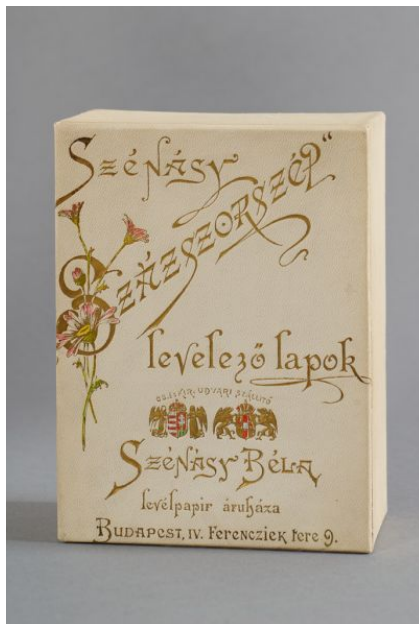 Szénásy
Százszorszép“
levelező lapok
UDVARI SZÁLLITÓ
Szénásy Béla
levélpapir áruháza
BUDAPEST, IV. Ferencziek tere 9.